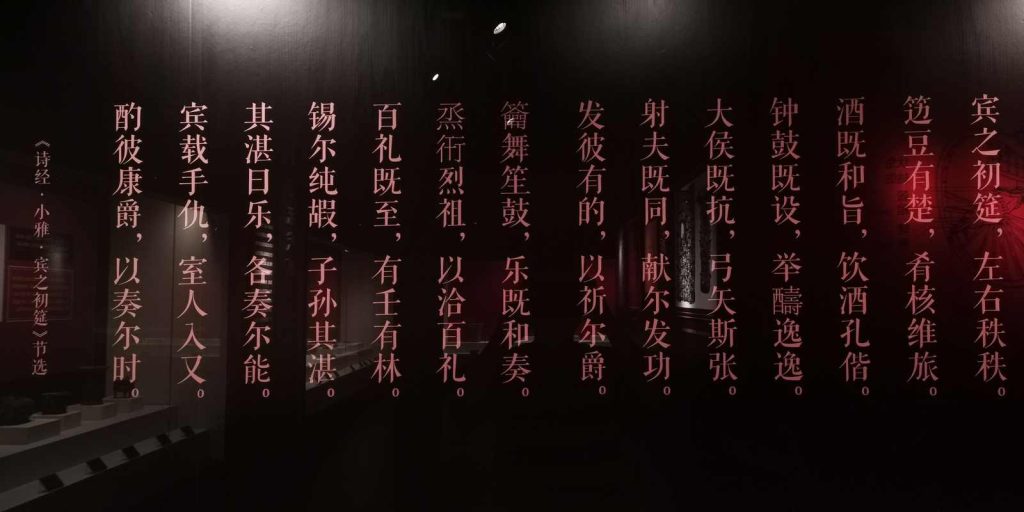 宾之初筵，左右秩秩。
笾豆有楚，肴核维旅。
酒既和旨，饮酒孔偕。
钟鼓既设，举醻逸逸。
大侯既抗，弓矢斯张。
射夫既同，献尔发功。
发彼有的，以祈尔爵。
籥舞笙鼓，乐既和奏。
烝衎烈祖，以洽百礼。
百礼既至，有壬有林。
锡尔纯嘏，子孙其湛。
其湛日乐，各奏尔能。
宾载手仇，室人入又。
酌彼康爵，以奏尔时。
《诗经·小雅·宾之初筵》节选